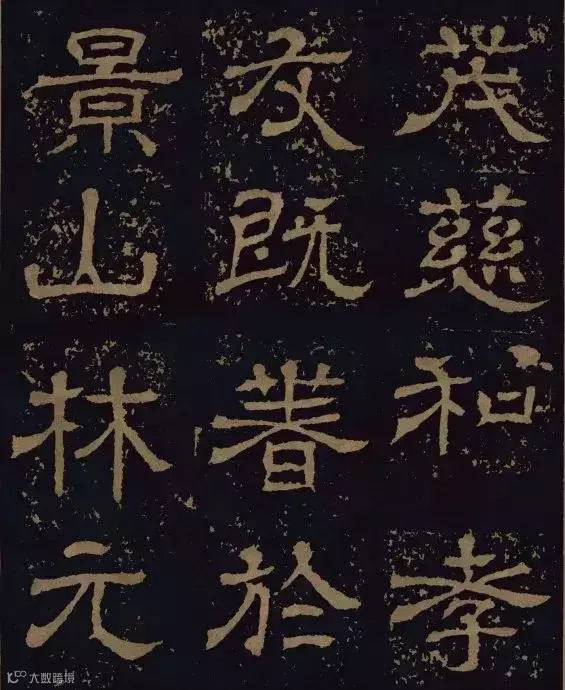 茂慈和孝
友既著於
景山林元
大数跨境